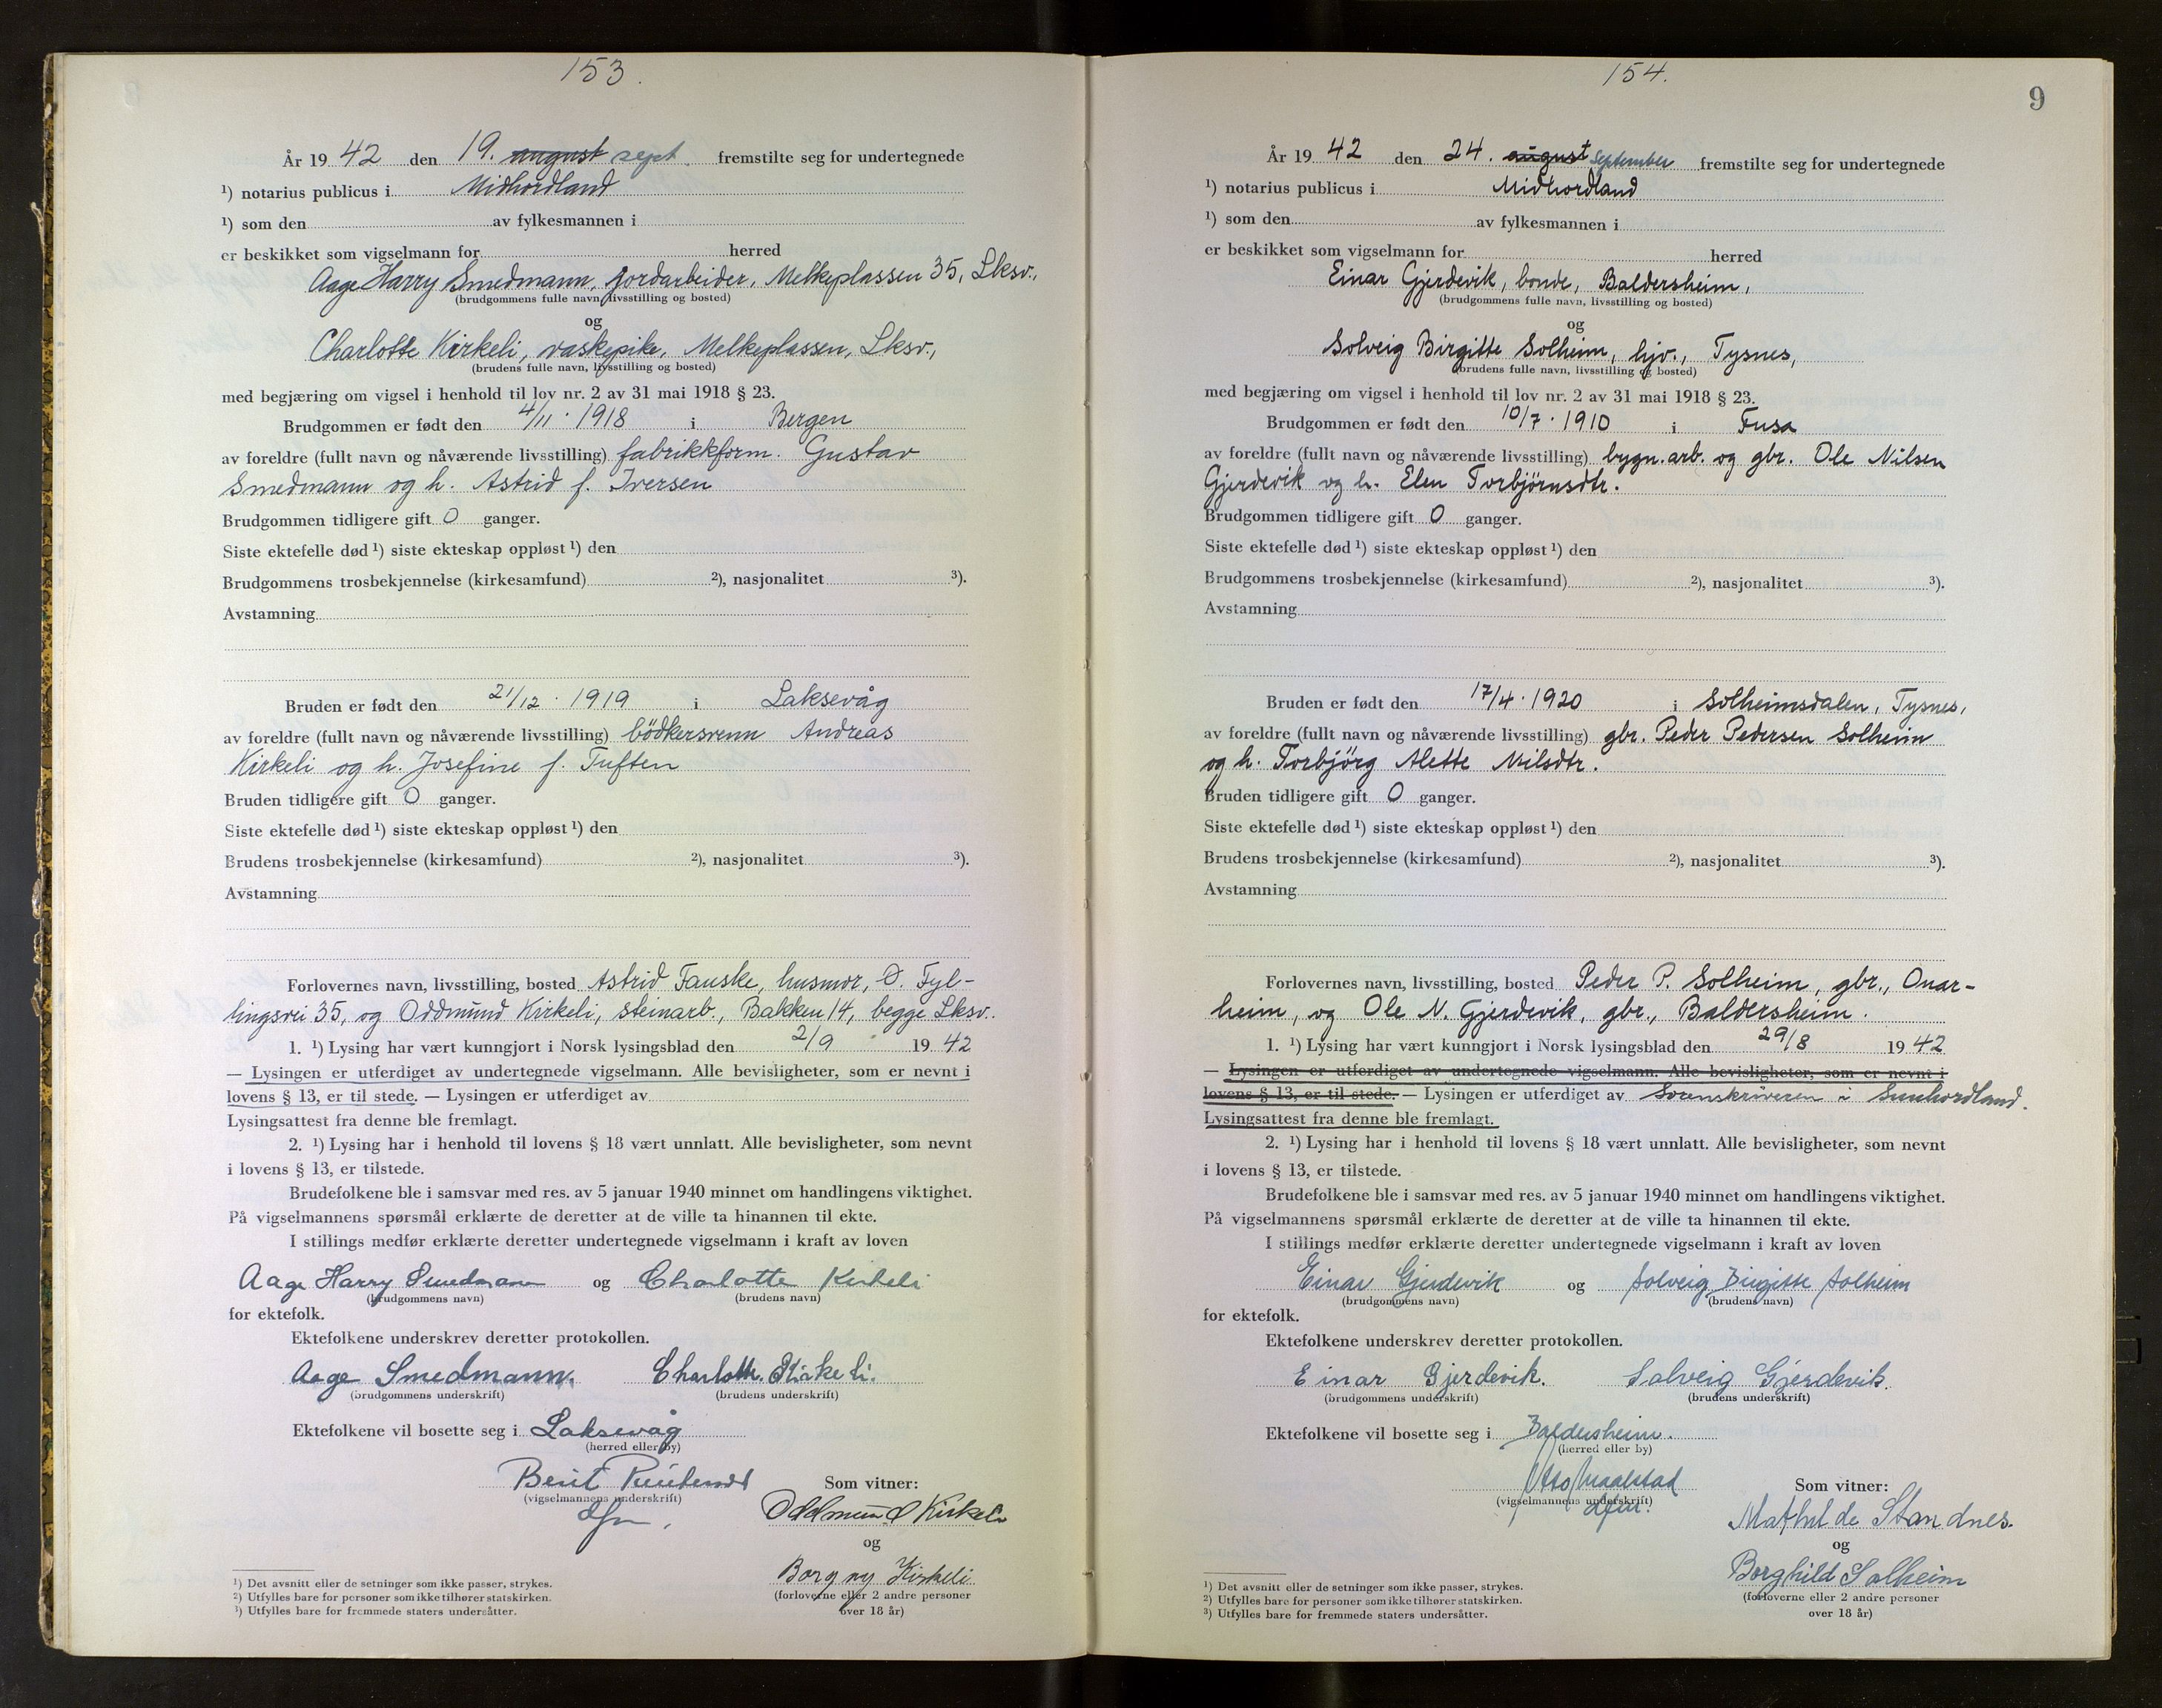 153.
År 19 42 den 19. august sept. fremstilte seg for undertegnede
¹) notarius publicus i Midhordland
¹) som den av fylkesmannen i
er beskikket som vigselmann for herred
Aage Harry Smedmann, jordarbeider, Melkeplassen 35, Lksv.,
(brudgommens fulle navn, livsstilling og bosted)
og
Charlotte Kirkeli, vaskepike, Melkeplassen, Lksv.,
(brudens fulle navn, livsstilling og bosted)
med begjæring om vigsel i henhold til lov nr. 2 av 31 mai 1918 § 23.
Brudgommen er født den 4/11 . 1918 i Bergen
av foreldre (fullt navn og nåværende livsstilling) fabrikkform. Gustav
Smedmann og h. Astrid f. Iversen
Brudgommen tidligere gift 0 ganger.
Siste ektefelle død ¹) siste ekteskap oppløst ¹) den
Brudgommens trosbekjennelse (kirkesamfund) ²), nasjonalitet ³).
Avstamning
Bruden er født den 21/12 . 1919 i Laksevåg
av foreldre (fullt navn og nåværende livsstilling) bödkersvenn Andreas
Kirkeli og h. Josefine f. Tuften
Bruden tidligere gift 0 ganger.
Siste ektefelle død ¹) siste ekteskap oppløst ¹) den
Brudens trosbekjennelse (kirkesamfund) ²), nasjonalitet ³).
Avstamning
Forlovernes navn, livsstilling, bosted Astrid Fauske, husmor, Ø. Fyl-
lingsvei 35, og Oddmund Kirkeli, steinarb., Bakken 14, begge Lksv.
1. ¹) Lysing har vært kunngjort i Norsk lysingsblad den 2/9 19 42
— Lysingen er utferdiget av undertegnede vigselmann. Alle bevisligheter, som er nevnt i
lovens § 13, er til stede. — Lysingen er utferdiget av
Lysingsattest fra denne ble fremlagt.
2. ¹) Lysing har i henhold til lovens § 18 vært unnlatt. Alle bevisligheter, som nevnt
i lovens § 13, er tilstede.
Brudefolkene ble i samsvar med res. av 5 januar 1940 minnet om handlingens viktighet.
På vigselmannens spørsmål erklærte de deretter at de ville ta hinannen til ekte.
I stillings medfør erklærte deretter undertegnede vigselmann i kraft av loven
Aage Harry Smedmann og Charlotte Kirkeli
(brudgommens navn) (brudens navn)
for ektefolk.
Ektefolkene underskrev deretter protokollen.
Aage Smedmann. Charlotte Kirkeli.
(brudgommens underskrift) (brudens underskrift)
Ektefolkene vil bosette seg i Laksevåg
(herred eller by)
Berit
(vigselmannens underskrift)
Som vitner:
Oddmund Kirkeli
og
Borgny Kirkeli
(forloverne eller 2 andre personer
over 18 år)
¹) Det avsnitt eller de setninger som ikke passer, strykes.
²) Utfylles bare for personer som ikke tilhører statskirken.
³) Utfylles bare for fremmede staters undersåtter.
154.
9
År 19 42 den 24. august September fremstilte seg for undertegnede
¹) notarius publicus i Midhordland
¹) som den av fylkesmannen i
er beskikket som vigselmann for herred
Einar Gjerdevik, bonde, Baldersheim,
(brudgommens fulle navn, livsstilling og bosted)
og
Solveig Birgitte Solheim, hjv., Tysnes,
(brudens fulle navn, livsstilling og bosted)
med begjæring om vigsel i henhold til lov nr. 2 av 31 mai 1918 § 23.
Brudgommen er født den 10/7 . 1910 i Fusa
av foreldre (fullt navn og nåværende livsstilling) bygn.arb. og gbr. Ole Nilsen
Gjerdevik og h. Elen Torbjörnsdtr.
Brudgommen tidligere gift 0 ganger.
Siste ektefelle død ¹) siste ekteskap oppløst ¹) den
Brudgommens trosbekjennelse (kirkesamfund) ²), nasjonalitet ³).
Avstamning
Bruden er født den 17/4 . 1920 i Solheimsdalen, Tysnes,
av foreldre (fullt navn og nåværende livsstilling) gbr. Peder Pedersen Solheim
og h. Torbjörg Alette Nilsdtr.
Bruden tidligere gift 0 ganger.
Siste ektefelle død ¹) siste ekteskap oppløst ¹) den
Brudens trosbekjennelse (kirkesamfund) ²), nasjonalitet ³).
Avstamning
Forlovernes navn, livsstilling, bosted Peder P. Solheim, gbr., Onar-
heim, og Ole N. Gjerdevik, gbr., Baldersheim.
1. ¹) Lysing har vært kunngjort i Norsk lysingsblad den 29/8 19 42
— Lysingen er utferdiget av undertegnede vigselmann. Alle bevisligheter, som er nevnt i
lovens § 13, er til stede. — Lysingen er utferdiget av Sorenskriveren i Sunnhordland.
Lysingsattest fra denne ble fremlagt.
2. ¹) Lysing har i henhold til lovens § 18 vært unnlatt. Alle bevisligheter, som nevnt
i lovens § 13, er tilstede.
Brudefolkene ble i samsvar med res. av 5 januar 1940 minnet om handlingens viktighet.
På vigselmannens spørsmål erklærte de deretter at de ville ta hinannen til ekte.
I stillings medfør erklærte deretter undertegnede vigselmann i kraft av loven
Einar Gjerdevik og Solveig Birgitte Solheim
(brudgommens navn) (brudens navn)
for ektefolk.
Ektefolkene underskrev deretter protokollen.
Einar Gjerdevik. Solveig Gjerdevik.
(brudgommens underskrift) (brudens underskrift)
Ektefolkene vil bosette seg i Baldersheim.
(herred eller by)
(vigselmannens underskrift)
Som vitner:
Mathilde Standnes.
og
Borghild Solheim
(forloverne eller 2 andre personer
over 18 år)
¹) Det avsnitt eller de setninger som ikke passer, strykes.
²) Utfylles bare for personer som ikke tilhører statskirken.
³) Utfylles bare for fremmede staters undersåtter.